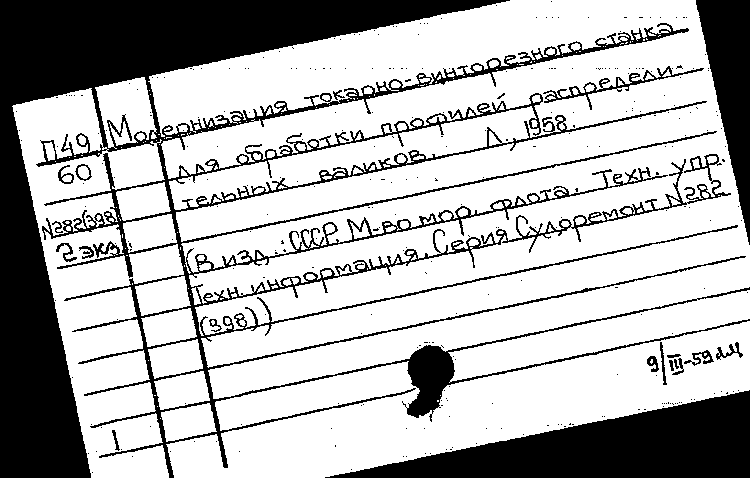 П49 Модернизация токарно-винторезного станка
60 для обработки профилей распредели-
тельных валиков. Л., 1958.
N282(398)
2 экз.
(В изд.: СССР. М-во мор. флота. Техн. упр.
Техн. информация. Серия Судоремонт N282
(398))
9/III-59
1